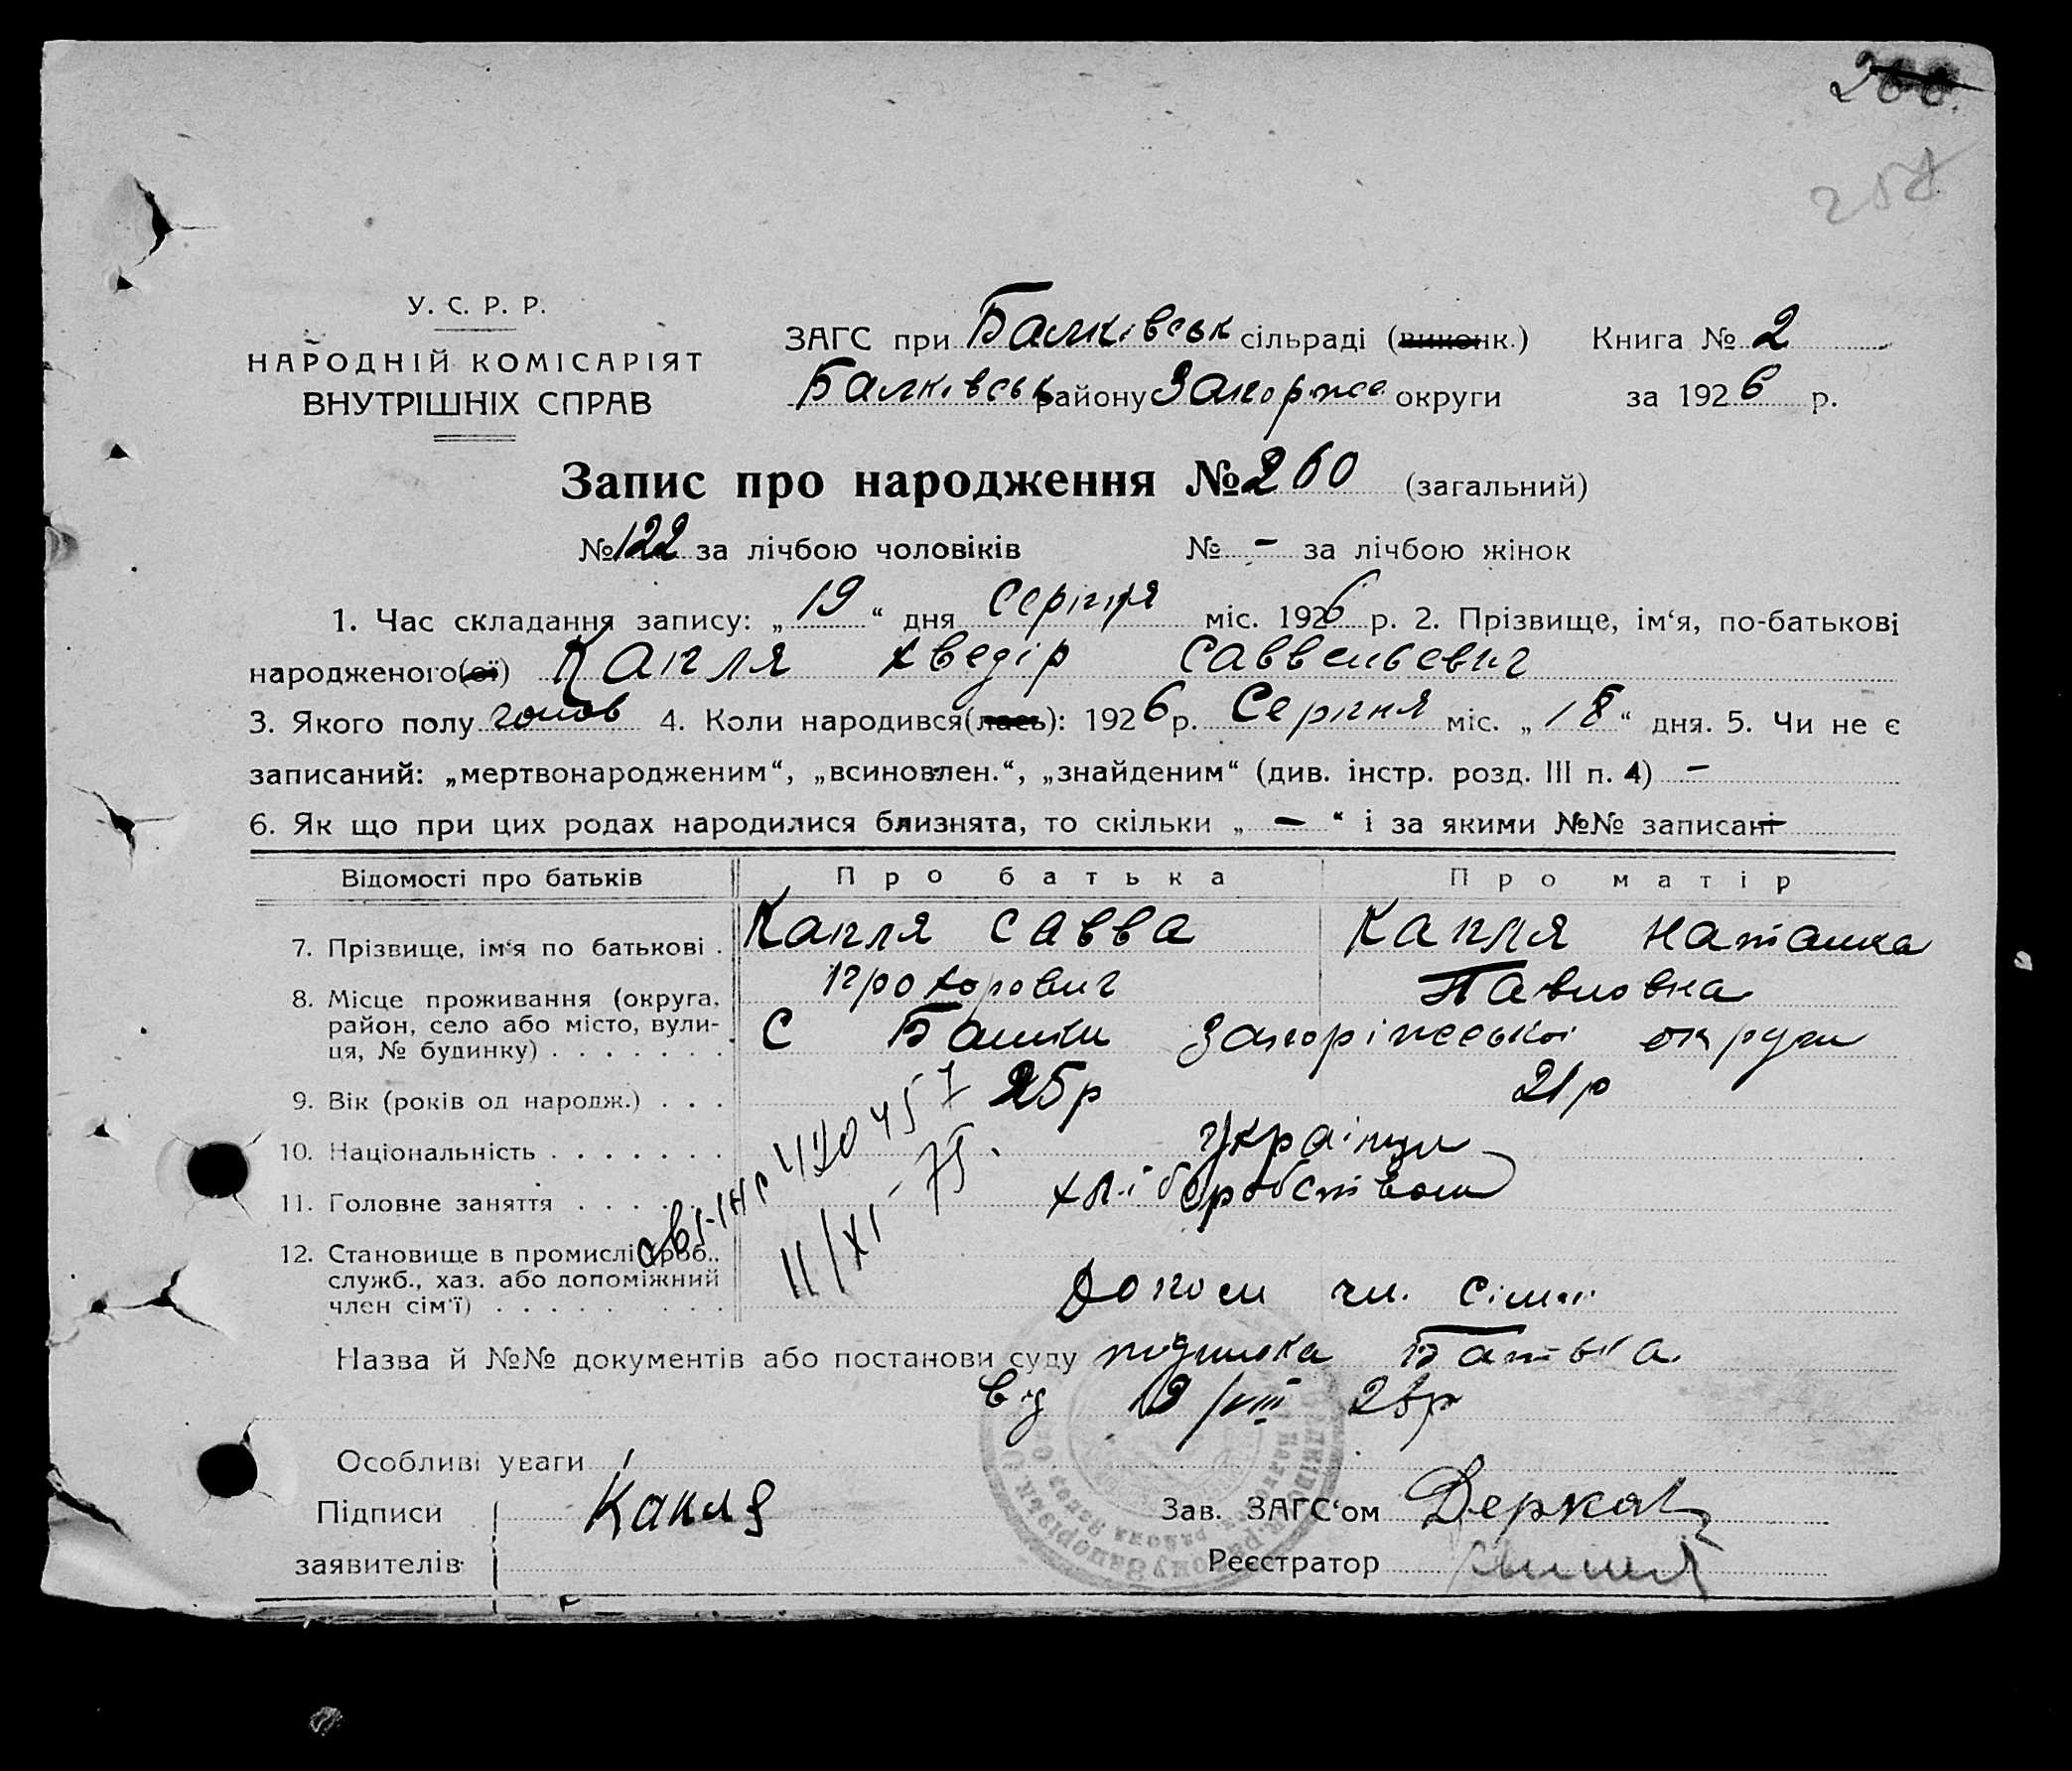 288.
258
У. С. Р. Р.
НАРОДНІЙ КОМІСАРІЯТ
ВНУТРІШНІХ СПРАВ
ЗАГС при Балківськ сільраді (виконк.) Книга № 2
Балківськ району Запоріже округи за 1926 р.
Запис про народження № 260 (загальний)
№ 122 за лічбою чоловіків № - за лічбою жінок
1. Час складання запису: „19“ дня Серпня міс. 1926 р. 2. Прізвище, ім‘я, по-батькові
народженого(ої) Капля Хведір Саввельевич
3. Якого полу чолов 4. Коли народився(лась): 1926 р. Серпня міс. „18“ дня. 5. Чи не є
записаний: „мертвонародженим“, „всиновлен.“, „знайденим“ (див. інстр. розд. III п. 4) -
6. Як що при цих родах народилися близнята, то скільки „ - “ і за якими №№ записані -
Відомості про батьків Про батька Про матір
7. Прізвище, ім‘я по батькові . Капля Савва Капля Наталка
Прохорович Павловна
8. Місце проживання (округа,
район, село або місто, вули-
ця, № будинку) . . . . . . . С Балки Запоріжської округи
9. Вік (років од народж.) . . . 25р 21р
10. Національність . . . . . . . Українци
11. Головне заняття . . . . . . хліборобством
12. Становище в промислі (роб.,
служб., хаз. або допоміжний
член сім‘ї) . . . . . . . . . Допом чл. сімьї
11/XI-75.
Назва й №№ документів або постанови суду підписка Батька
від 19/VIII 26р
Особливі уваги
Підписи Капля Зав. ЗАГС‘ом Деркач
заявителів Реєстратор